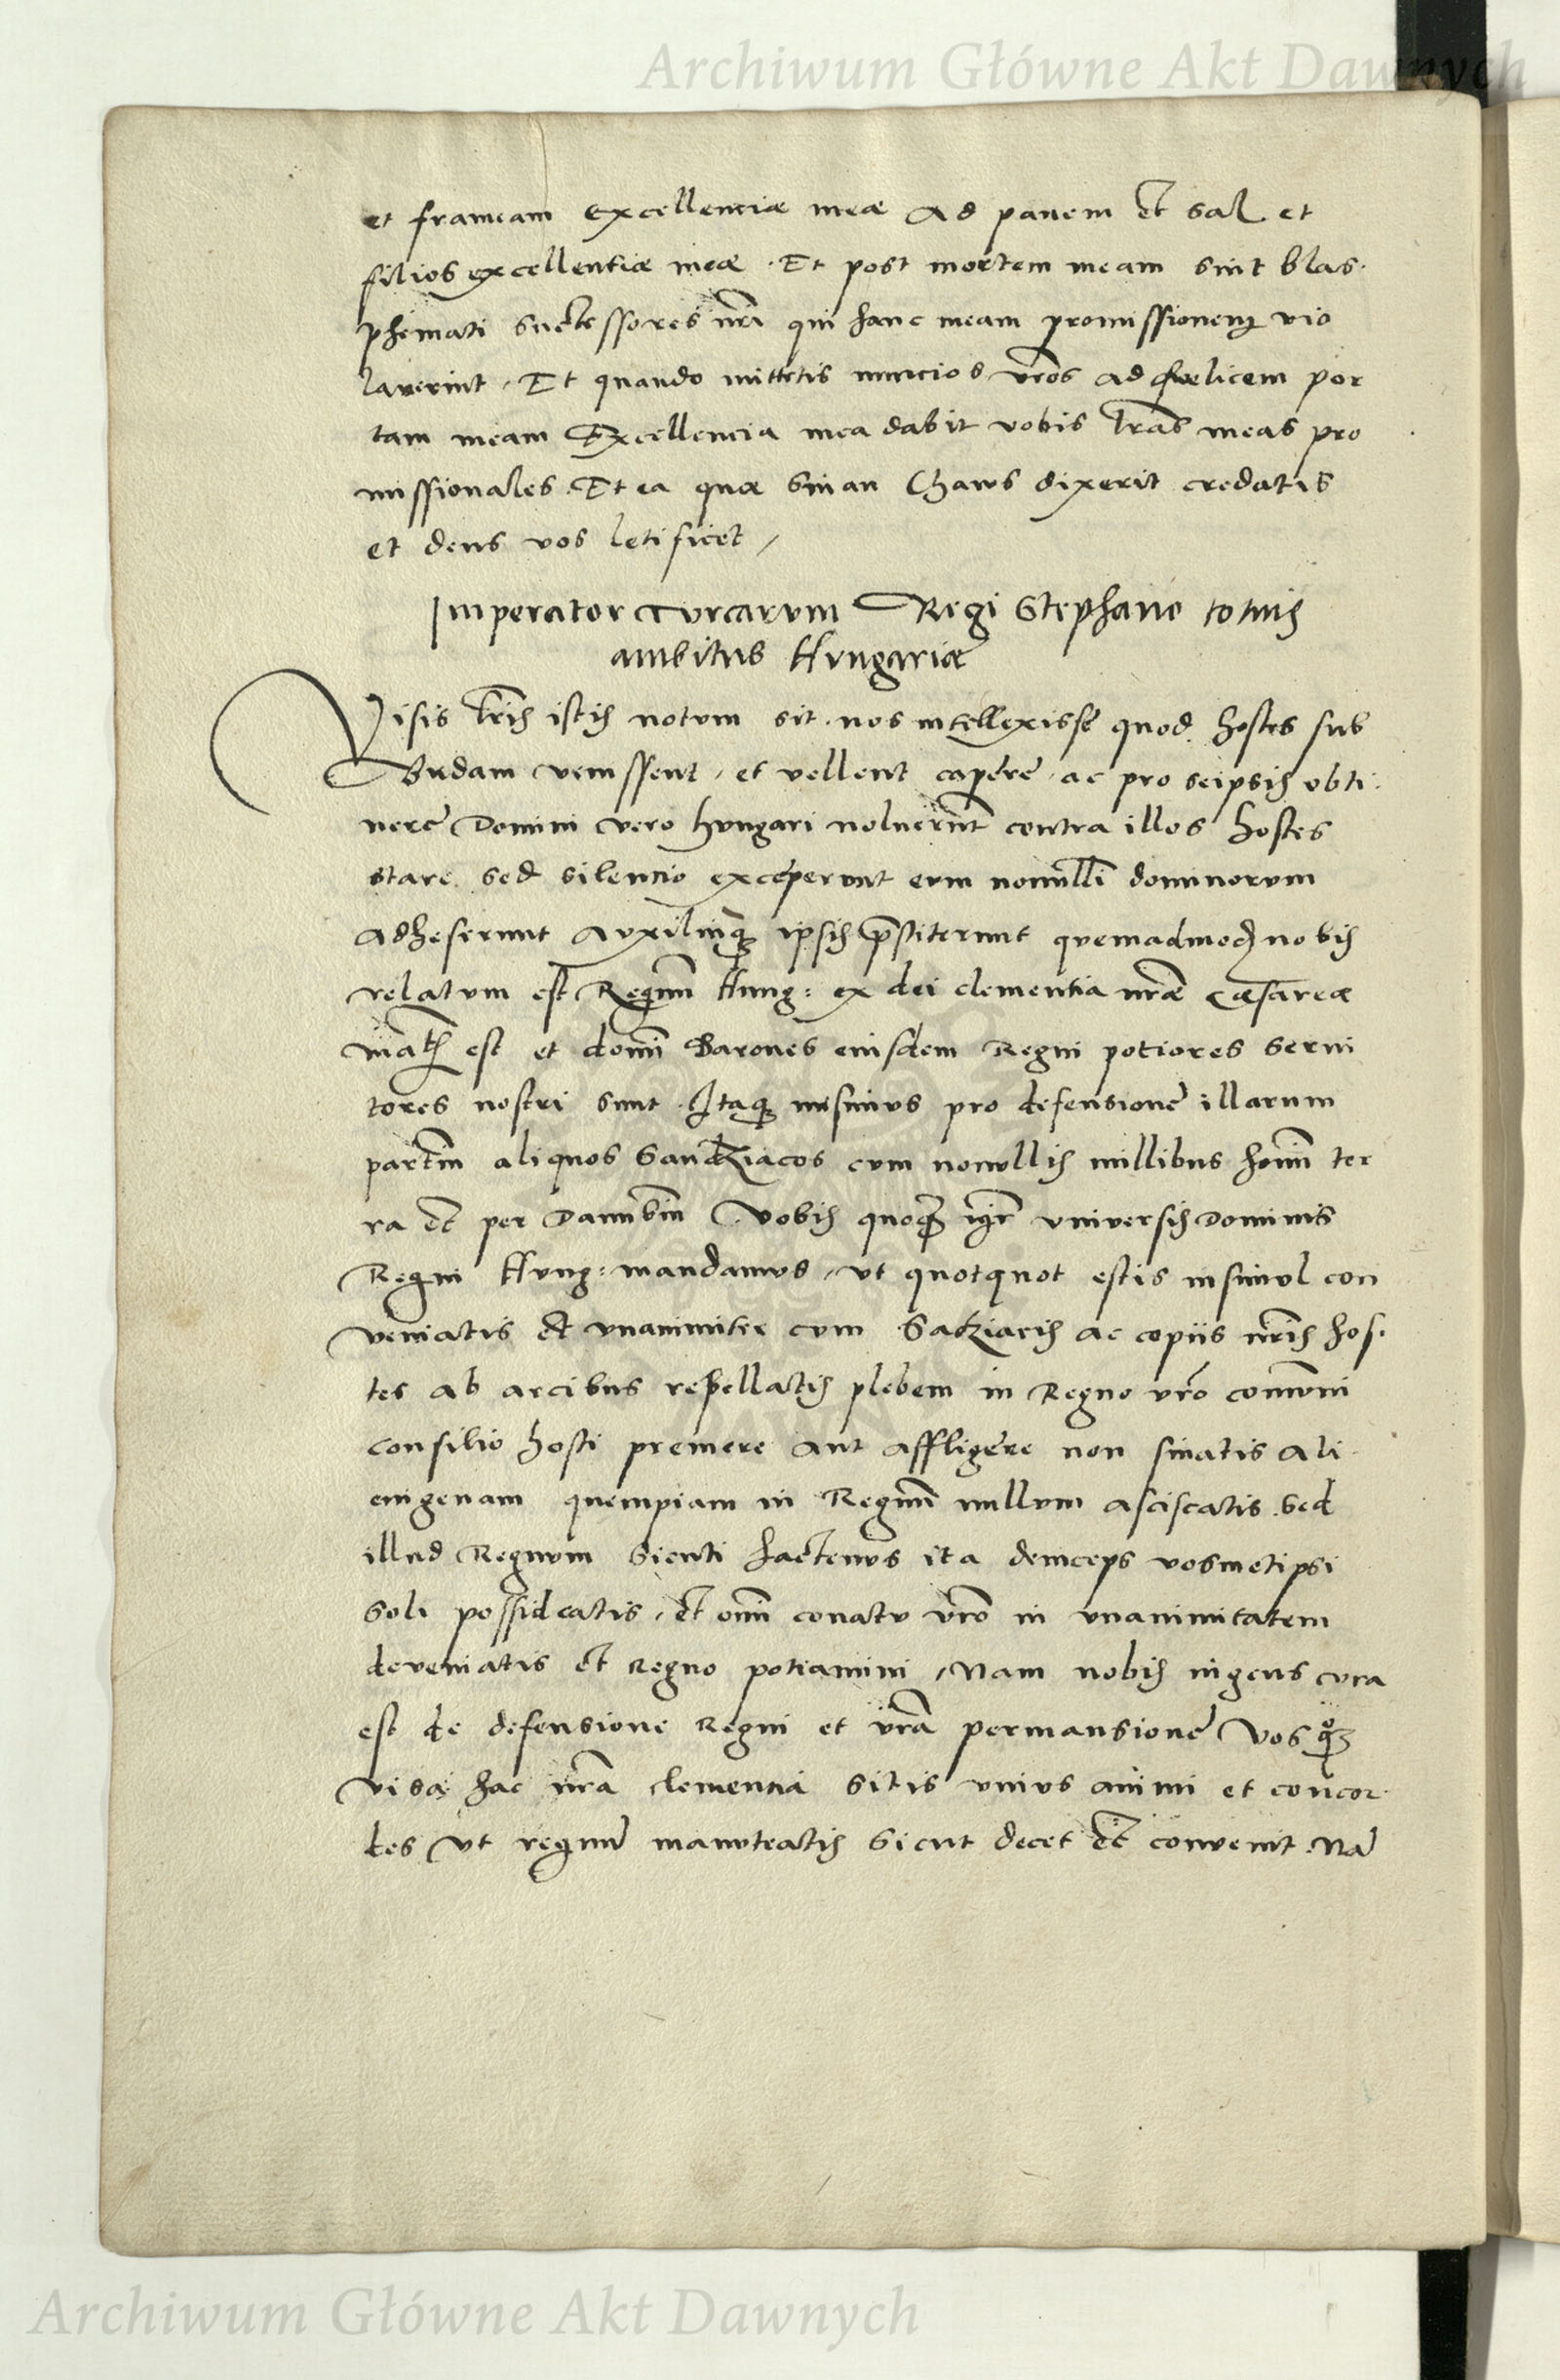 Archiwum Główne Akt Dawnych
et frameam Excellenciæ meæ ad panem et sal et
filios excellentiæ meæ . Et post mortem meam sint blas
phemati successores nr̃i qui hanc meam promissionem vio
laverint . Et quando mittetis nuncios vr̃os ad foelicem por
tam meam Excellencia mea dabit vobis lr̃as meas pro
missionales . Et ea quæ Sinan Chaus dixerit credatis
et deus vos letificet /
Imperator Turcarum Regi Stephano totius
ambitus Hungariæ
Visis lr̃is istis notum sit . nos intellexisse quod hostes sub
Budam venissent , et vellent capere , ac pro seipsis obti
nere Domini vero hungari noluerint contra illos hostes
stare sed silencio exceperunt eum nonnulli dominorum
adheserunt auxiliumq; ipsis p̃stiterunt quemadmod nobis
relatum est Regnum Hung: ex dei clementia nr̃æ Cæsareæ
Mat̃is est et domi Barones eiusdem Regni potiores servi
tores nostri sunt . Itaq; misimus pro defensione illarum
partium aliquos Sandziacos cum nonullis millibus homi ter
ra et per Danubiu Vobis quoq; igr̃ universis Dominis
Regni Hung: mandamus , ut quotquot estis insimul con
veniatis et unanimiter cum Sadziacis ac copiis nr̃is hos
tes ab arcibus repellatis plebem in Regno vr̃o comuni
consilio hosti premere aut affligere non sinatis ali
enigenam quempiam in Regnum nullum asciscatis . Sed
illud Regnum sicuti hactenus ita deinceps vosmetipsi
soli possideatis , et omi conatu vr̃o in unanimitatem
deveniatis et Regno potiamini , Nam nobis ingens cura
est de defensione Regni et vr̃a permansione Vos q°q;
visa hac nr̃a clementia sitis unius animi et concor
des ut regnum manuteatis sicut decet et convenit . Nã
Archiwum Główne Akt Dawnych